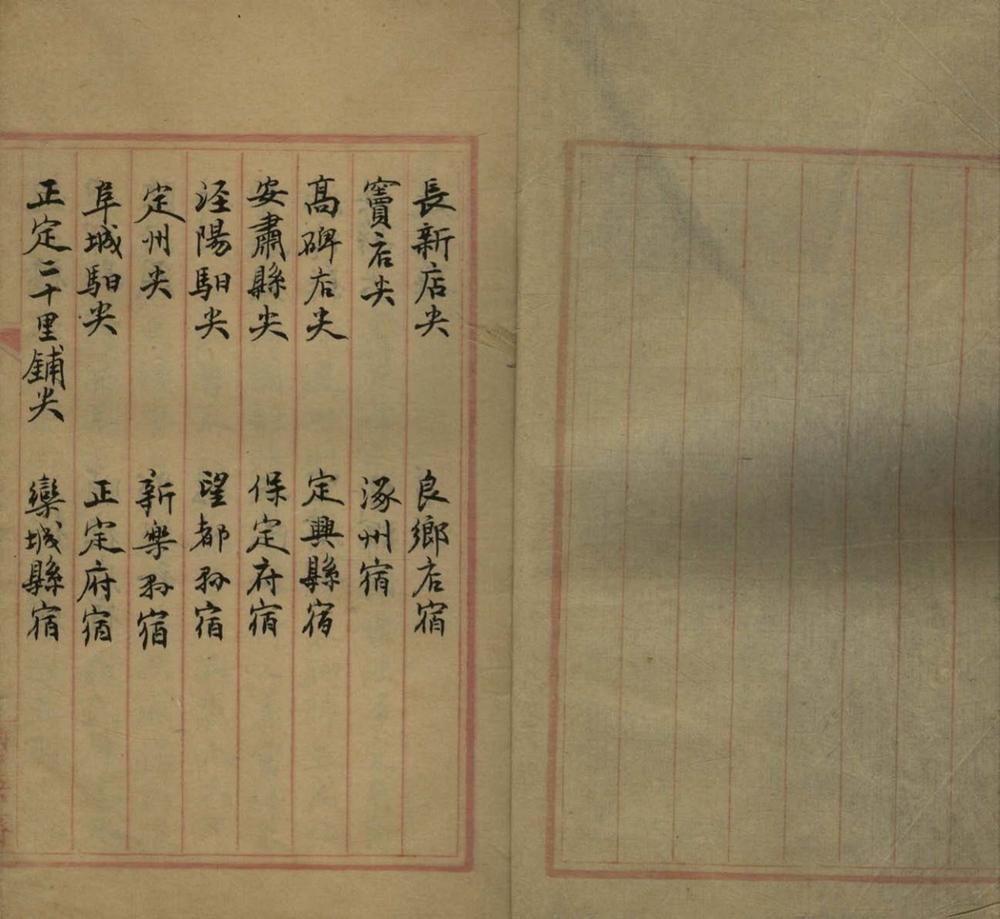 長新店尖 良鄉店宿
竇店尖 涿州宿
高碑店尖 定興縣宿
安肅縣尖 保定府宿
泾陽馹尖 望都县宿
定州尖 新樂县宿
阜城馹尖 正定府宿
正定二十里鋪尖 欒城縣宿